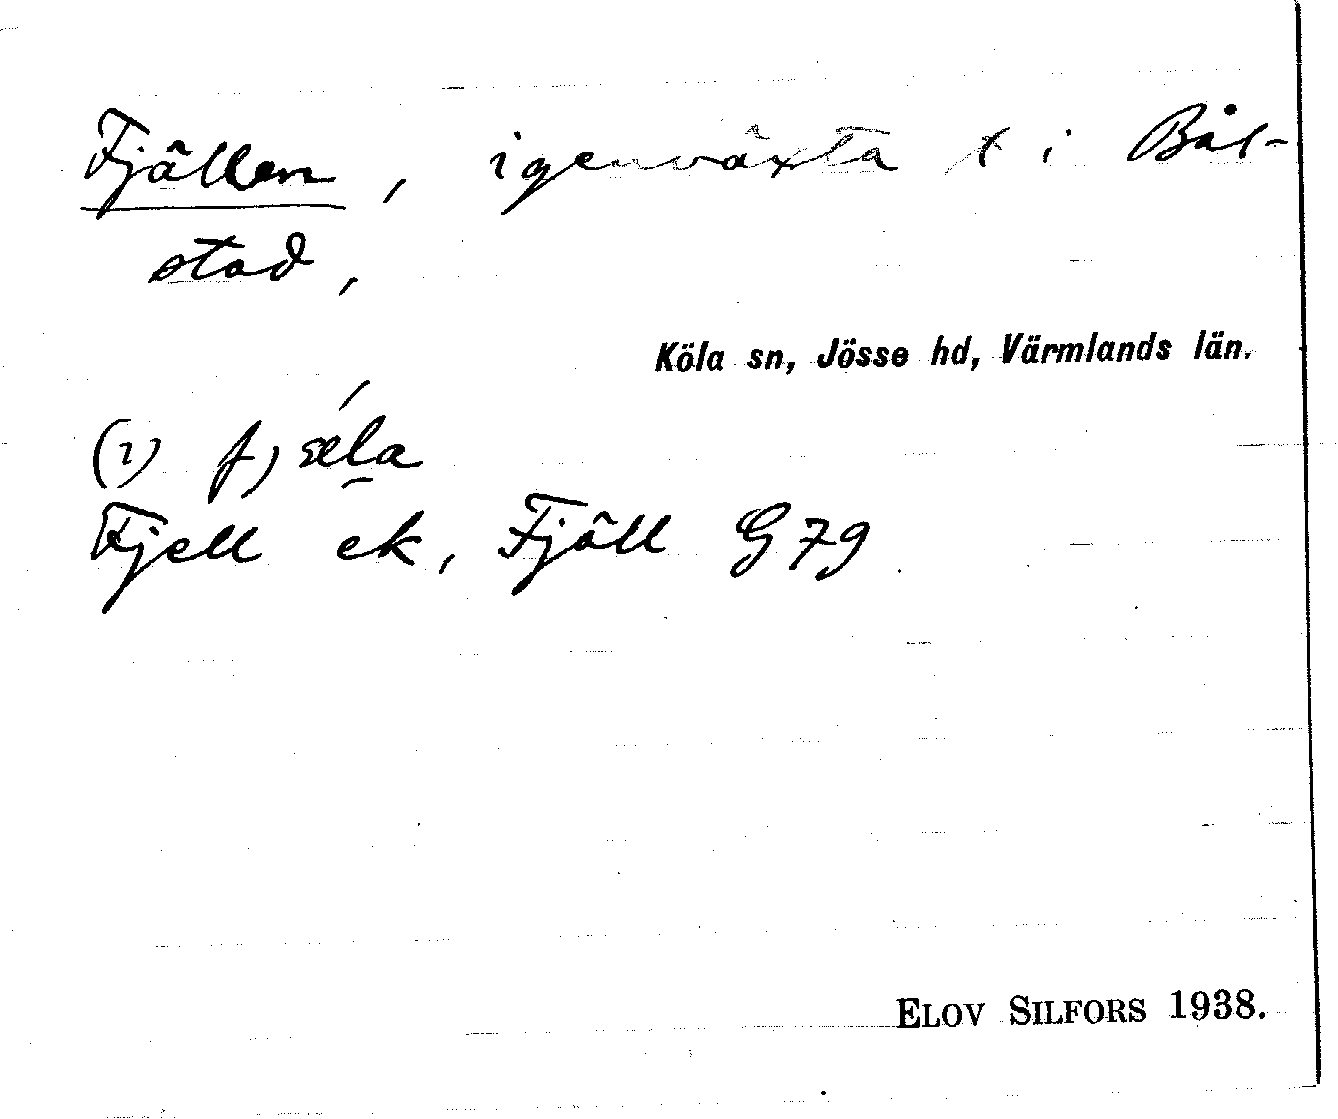 Fjällen, igenväxta t i Bål-
stad,
Köla sn, Jösse hd, Värmlands län.
(i) fjæ̀la
Fjell ek, Fjäll G 79
ELOV SILFORS 1938.